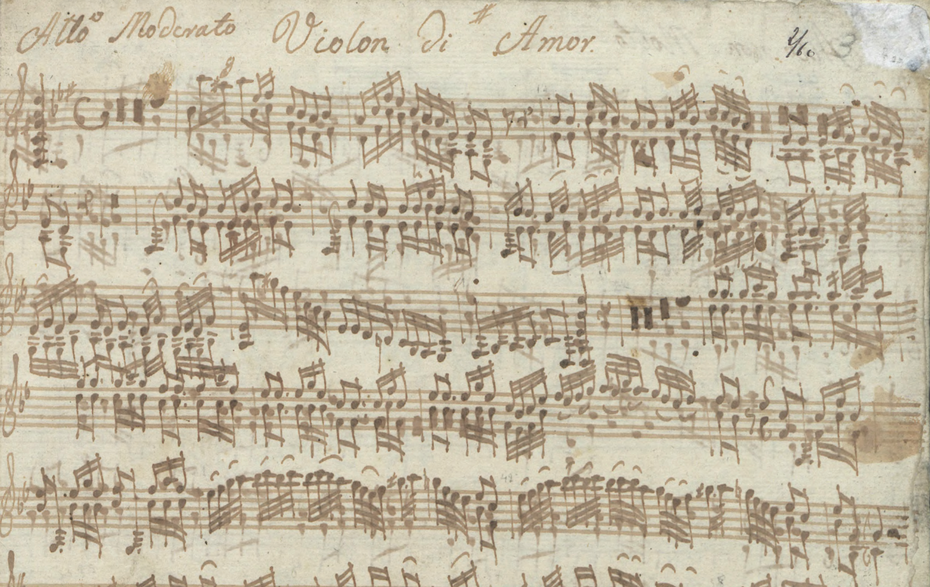 Allo Moderato Violon di Amor